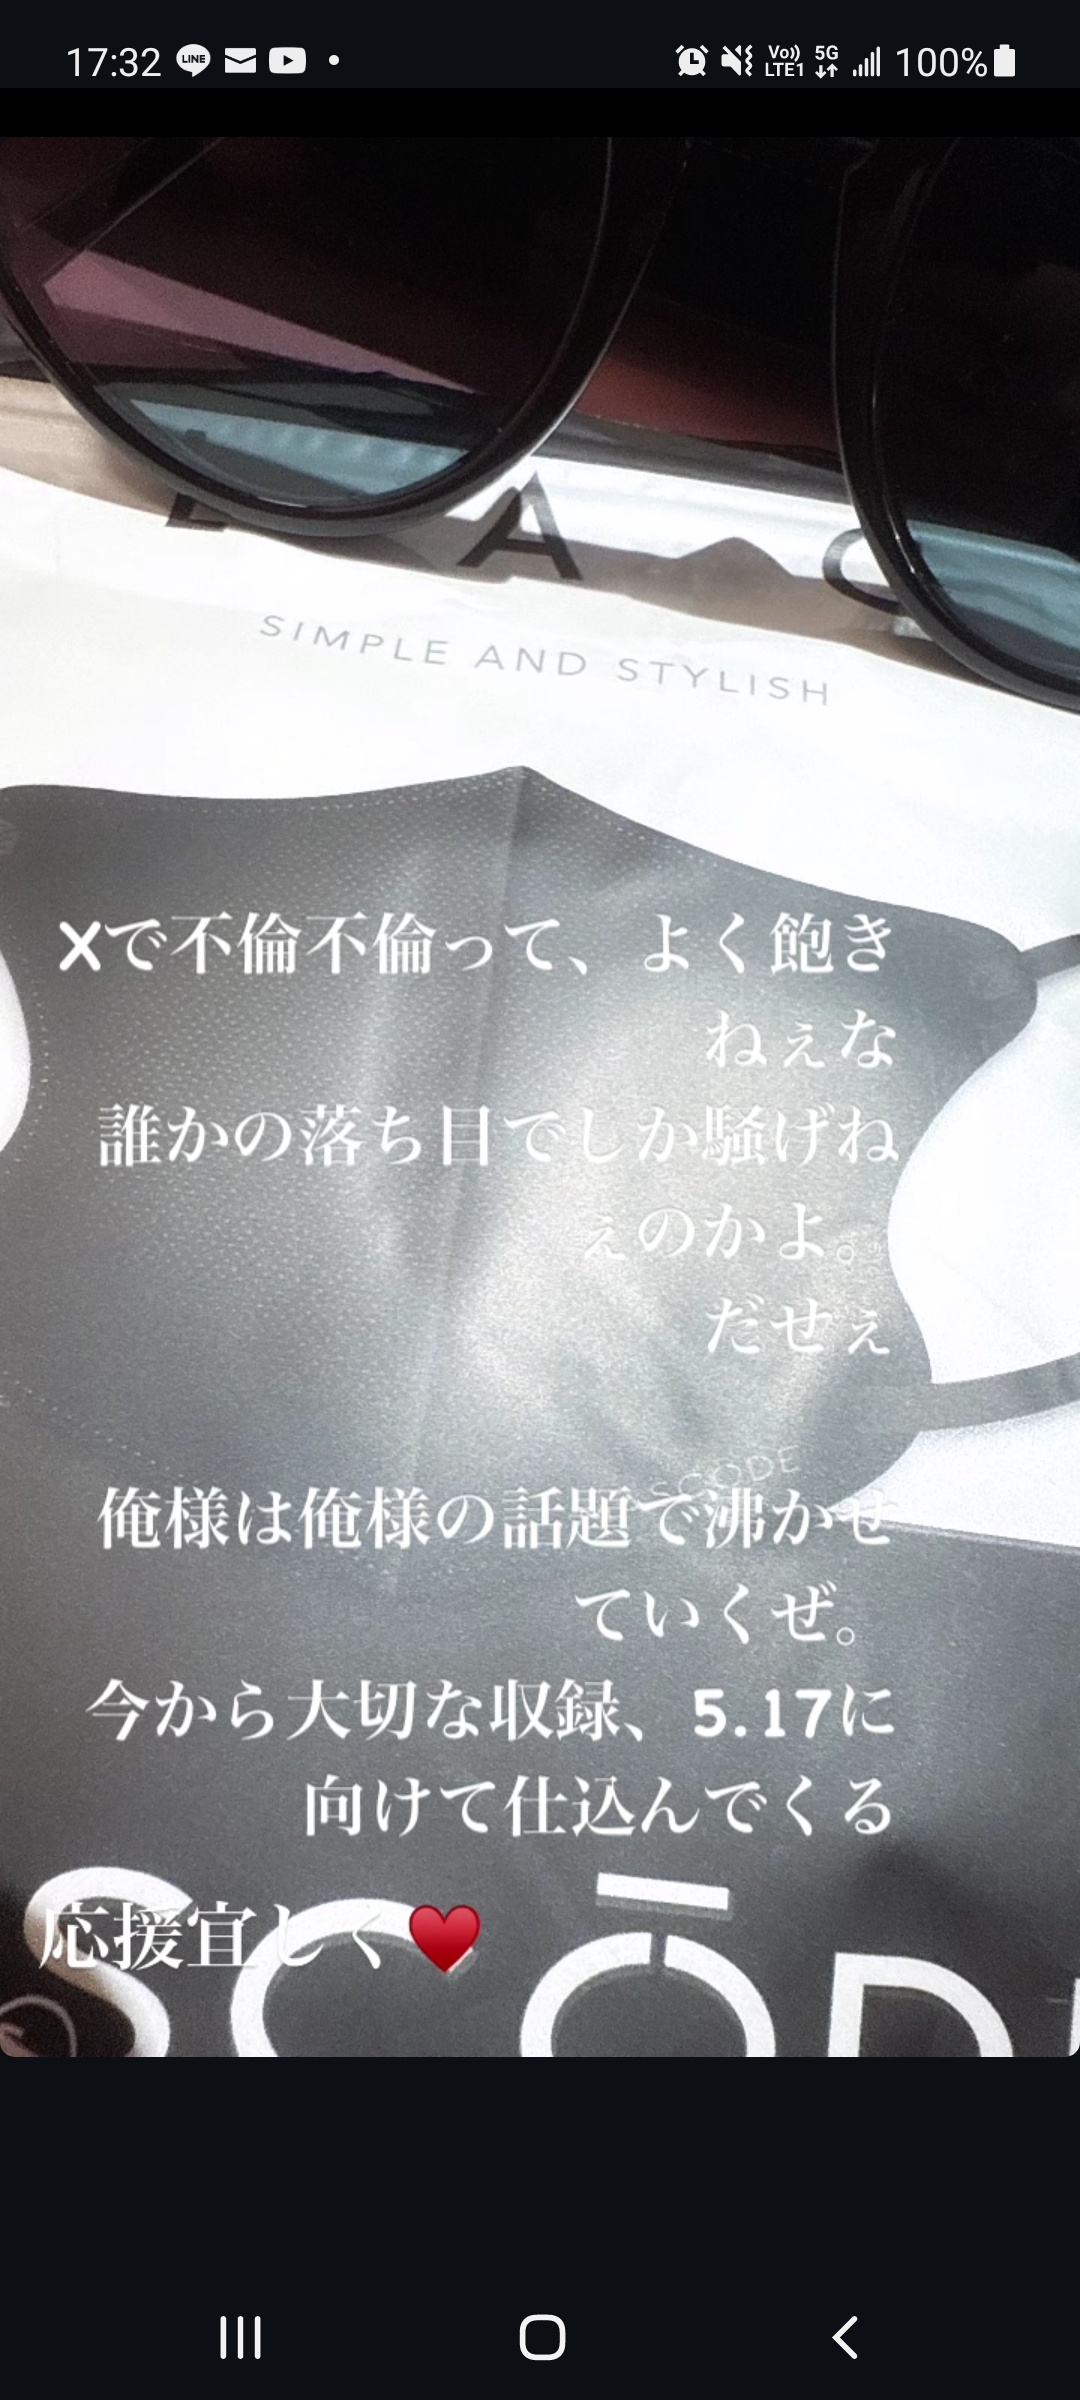 17:32
LINE
Vo))
LTE1
5G
100%
A
SIMPLE AND STYLISH
Xで不倫不倫って、よく飽き
ねぇな
誰かの落ち目でしか騒げね
ぇのかよ。
だせぇ
SCODE
俺様は俺様の話題で沸かせ
ていくぜ。
今から大切な収録、5.17に
向けて仕込んでくる
応援宜しく♥
SCŌD